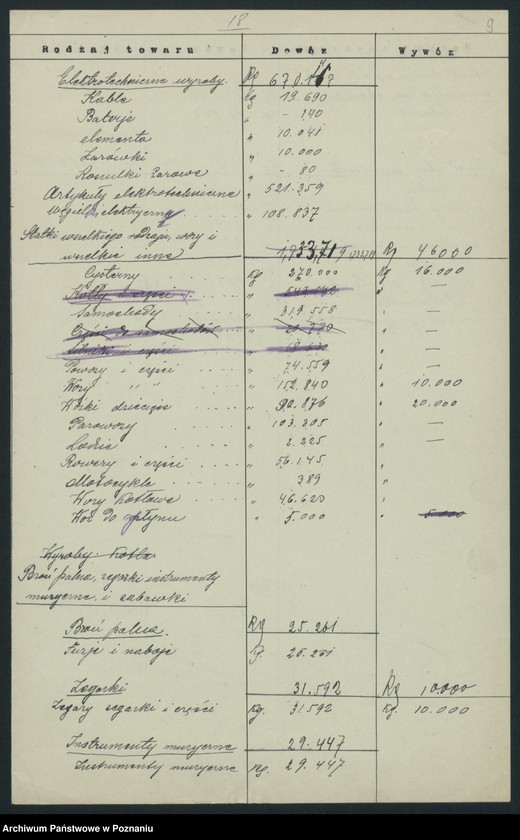 18
9
Rodzaj towaru Dowóz Wywóz
Elektrotechniczne wyroby Kg
Kable Kg 19.690
Baterje " - 140
elementa " 10.041
Żarówki " 10.000
Koszulki żarowe " - 80
Artykuły elektrotechniczne " 521.359
Węgielki elektryczne " 108.837
Statki wszelkiego rodzaju, wozy i
wszelkie inne Kg 46000
Cysterny Kg 270.000 Kg 16.000
Kotły i części " —
Samochody " 319.558 " —
Części do samochodów " —
i części " —
Powozy i części " 74.559 " —
Wozy " " " 152.840 " 10.000
Wózki dziecięce " 90.876 " 20.000
Parowozy " 103.205 " —
Łodzie " 2.225 " —
Rowery i części " 56.145
Motocykle " 389
Wozy kotłowe " 46.620
Wóz do " 5.000 " 5.000
Wyroby
Broń palna, zegarki instrumenty
muzyczne i zabawki
Broń palna. Kg 25.261
Fuzje i naboje Kg. 25.261
Zegarki 31.592 Kg 10.000
Zegary zegarki i części Kg. 31.592 Kg. 10.000
Instrumenty muzyczne 29.447
Instrumenty muzyczne Kg. 29.447
Archiwum Państwowe w Poznaniu